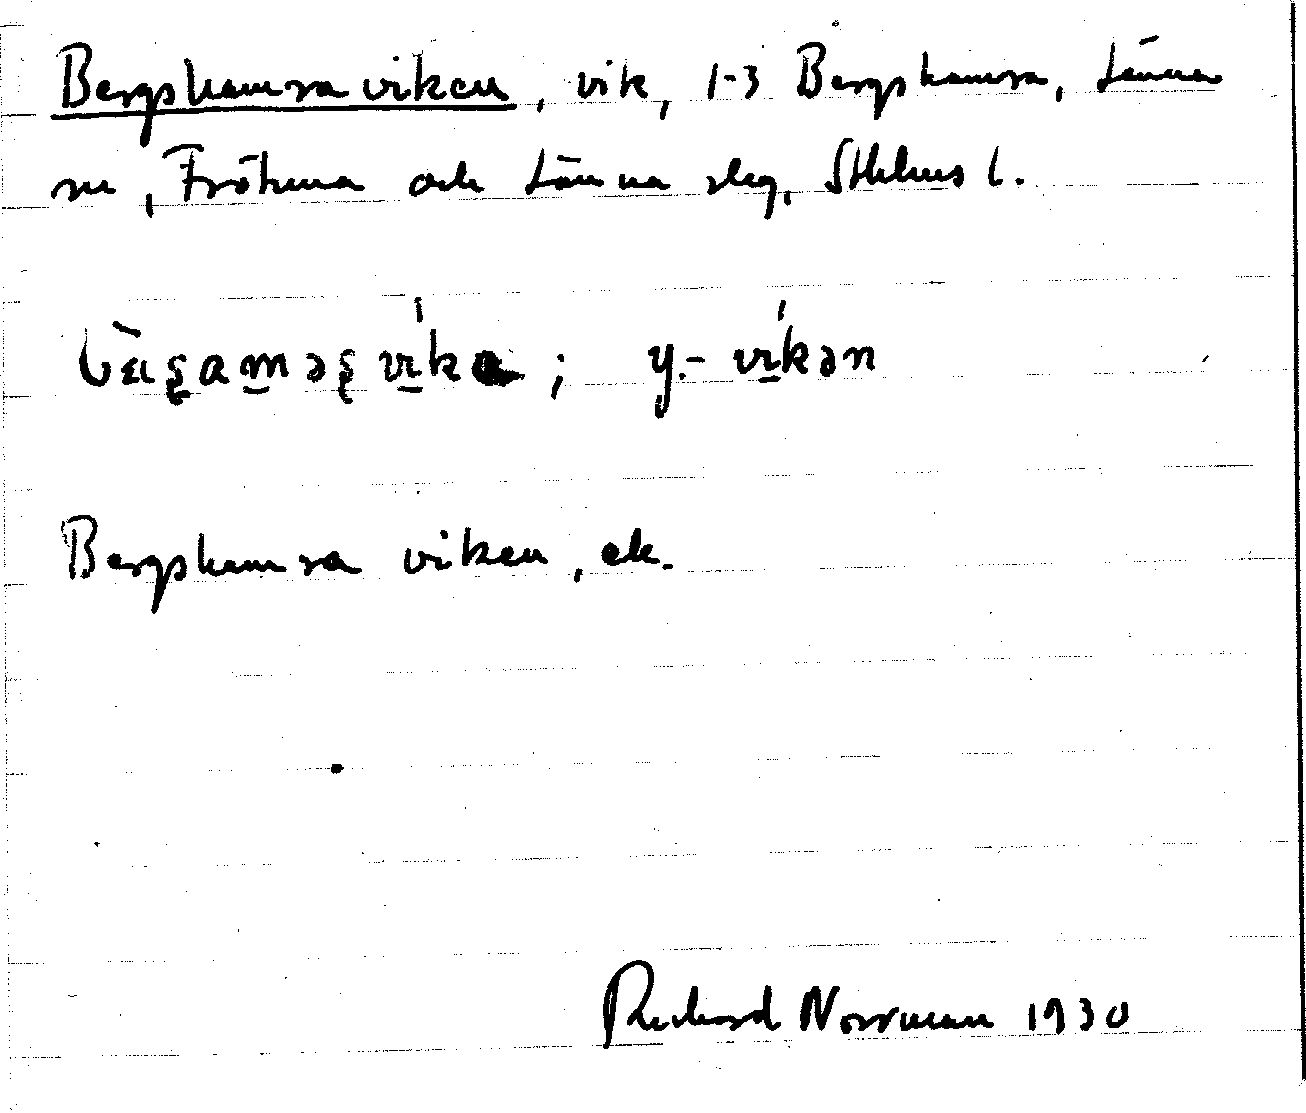 Bergshamraviken, vik, 1-3 Bergshamra, Länna
sn, Frötuna och Länna slg, Sthlms l.
vi̱kən
Bergshamra viken, ek.
Richard Norrman 1930